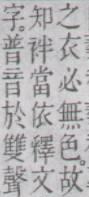 之衣必無色。故
知袢當依釋文
字。普音於雙聲